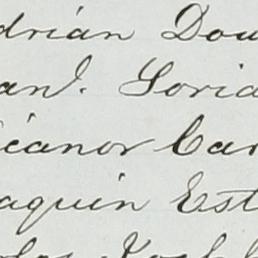 drián Dou
an J. Soria
icanor Car
aquin Est